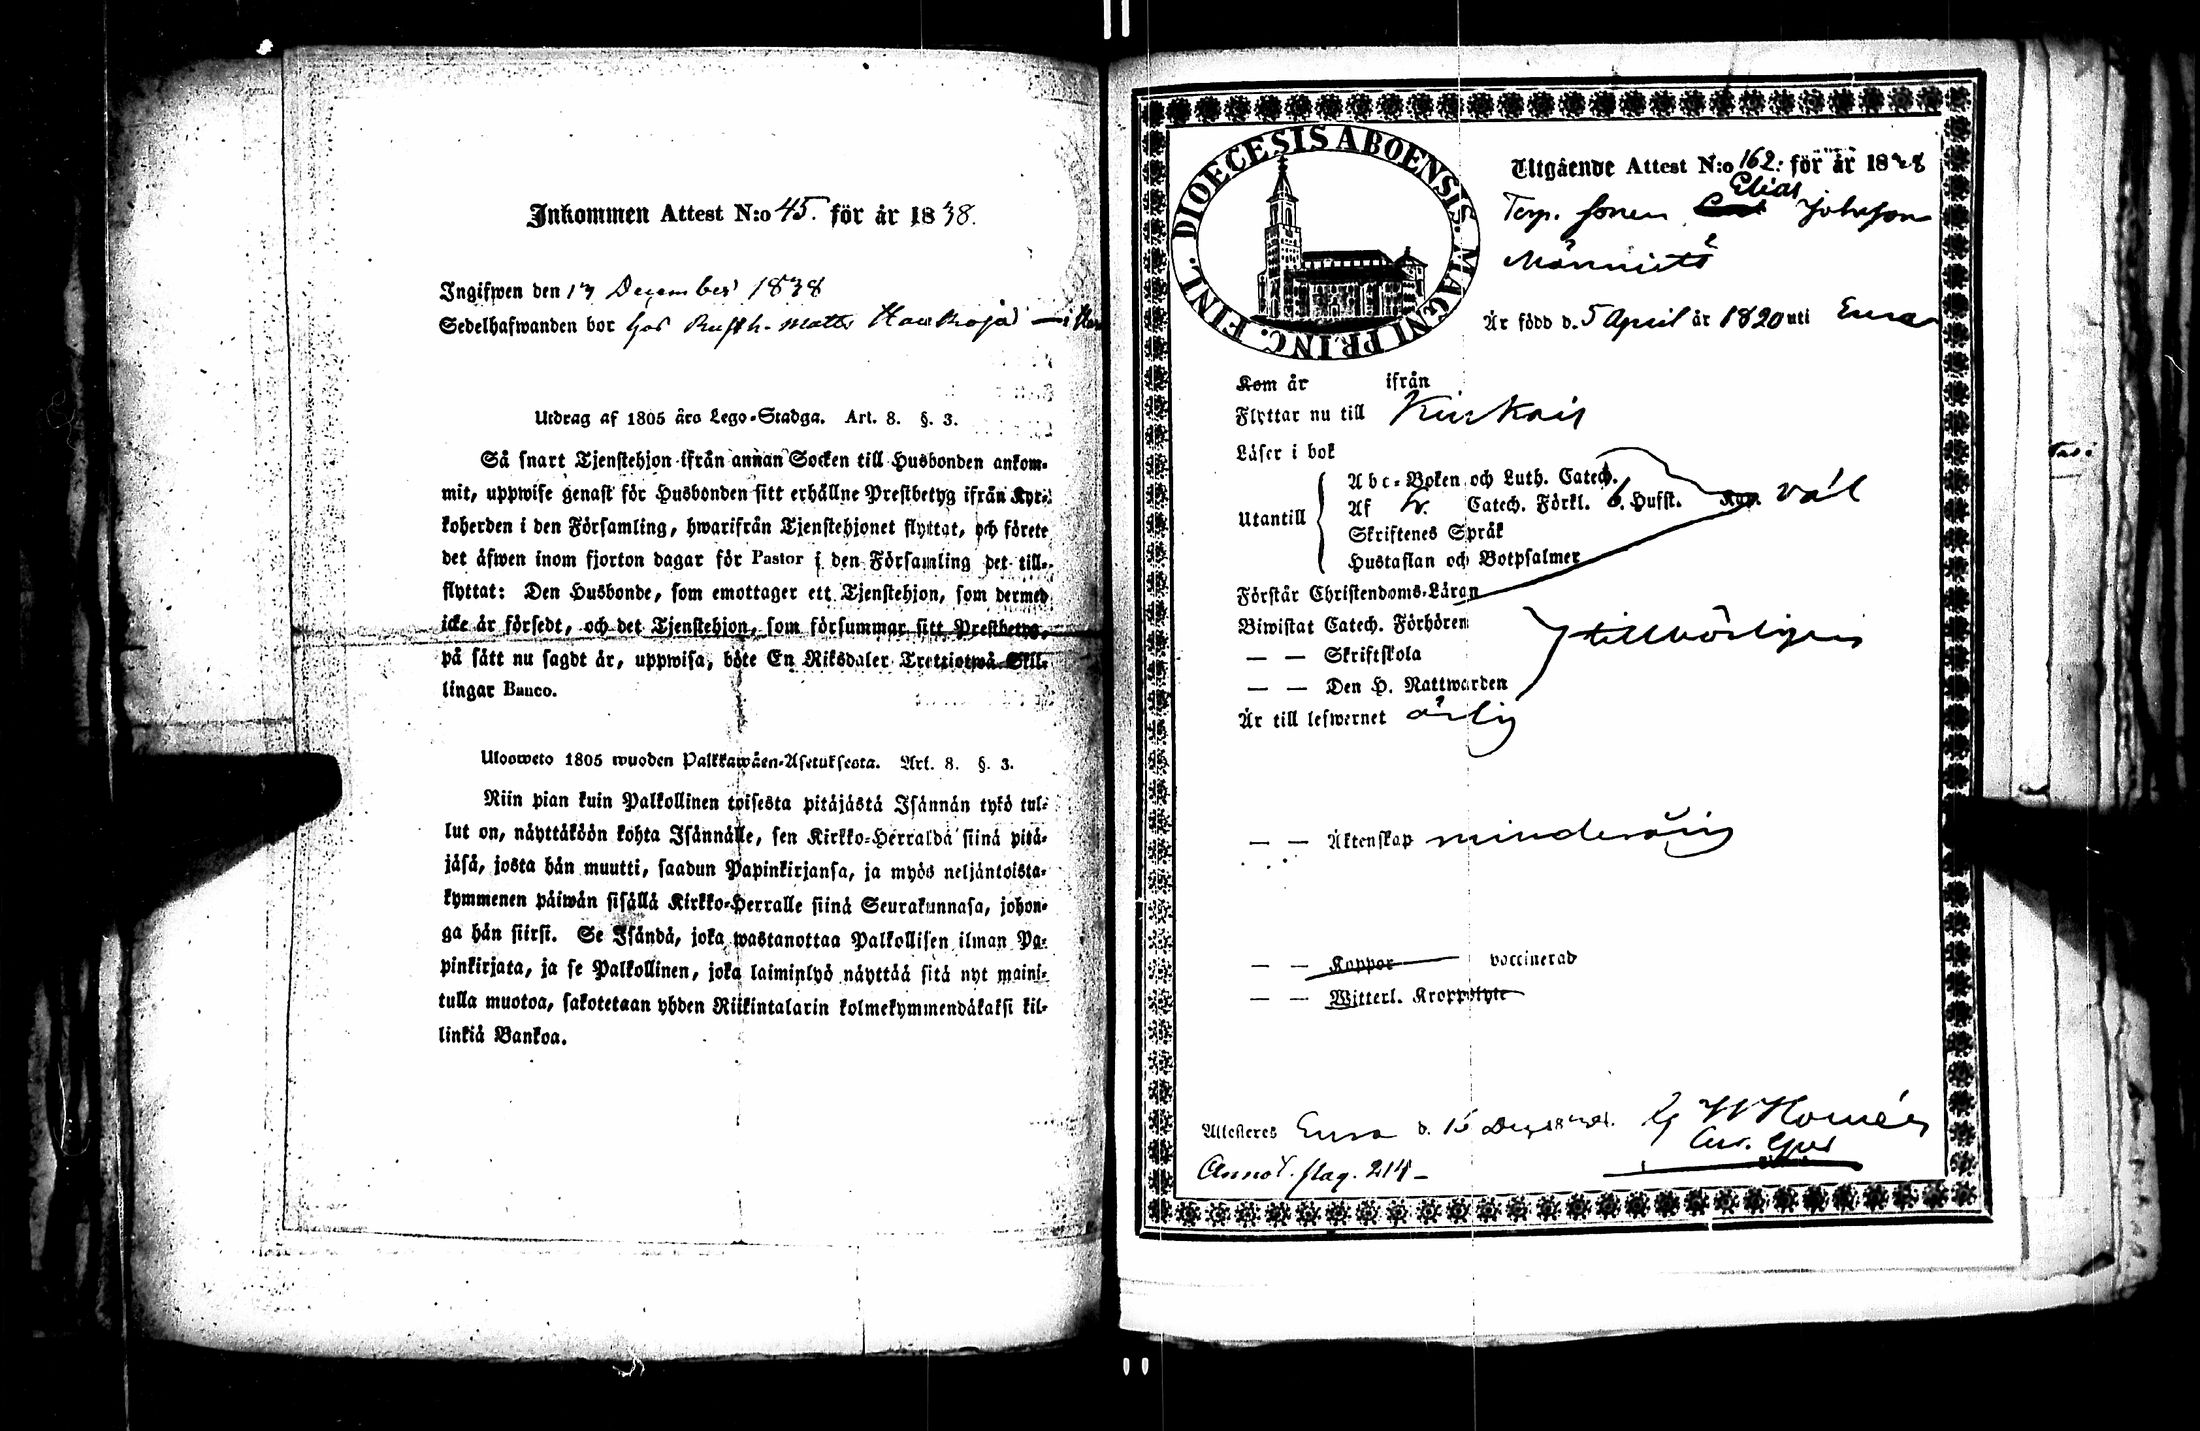 Inkommen Attest N:o 45. för år 1838.
Ingifwen den 17 December 1838
Sedelhafwanden bor hos Rusth. Matts
Utdrag af 1805 års Lego-Stadga. Art. 8. §. 3.
Så snart Tjenstehjon ifrån annan Socken till Husbonden ankom-
mit, uppwise genast för Husbonden sitt erhållne Prestbetyg ifrån Kyr-
koherden i den Församling, hwarifrån Tjenstehjonet flyttat, och förete
det äfwen inom fjorton dagar för Pastor i den Församling det till-
flyttat: Den Husbonde, som emottager ett Tjenstehjon, som dermed
icke är försedt, och det Tjenstehjon, som försummar sitt Prestbetyg,
på sätt nu sagdt är, uppwisa, böte En Riksdaler Trettiotwå Skil-
lingar Banco.
Ulosweto 1805 wuoden Palkkawäen-Asetuksesta. Art. 8. §. 3.
Niin pian kuin Palkollinen toisesta pitäjästä Isännän tykö tul-
lut on, näyttäköön kohta Isännälle, sen Kirkko-Herralda siinä pitä-
jäsä, josta hän muutti, saadun Papinkirjansa, ja myös neljäntoista-
kymmenen päiwän sisällä Kirkko-Herralle siinä Seurakunnasa, johon-
ga hän siirsi. Se Isändä, joka wastanottaa Palkollisen ilman Pa-
pinkirjata, ja se Palkollinen, joka laiminlyö näyttää sitä nyt maini-
tulla muotoa, sakotetaan yhden Riikintalarin kolmekymmendäkaksi kil-
linkiä Bankoa.
DIOECESIS ABOENSIS. MAGNI PRINC. FINL.
Utgående Attest N:o 162. för år 1838
Elias
Torp. sonen Johansson
Är född d. 5 April år 1820 uti Eura
Kom år ifrån
Flyttar nu till Kiukais
Läser i bok
Abc-Boken och Luth. Catech.
Utantill Af Catech. Förkl. Husst. väl
Skriftenes Språk
Hustaflan och Botpsalmer
Förstår Christendoms-Läran
Biwistat Catech. Förhören
— — Skriftskola
— — Den H. Nattwarden
tillbörligen
Är till lefwernet ärlig
— — Äktenskap minderårig
— — Koppor vaccinerad
— — Witterl. Kroppslyte
Attesteras Eura d. 15 Dec. 1838.
Annot. pag. 214 –